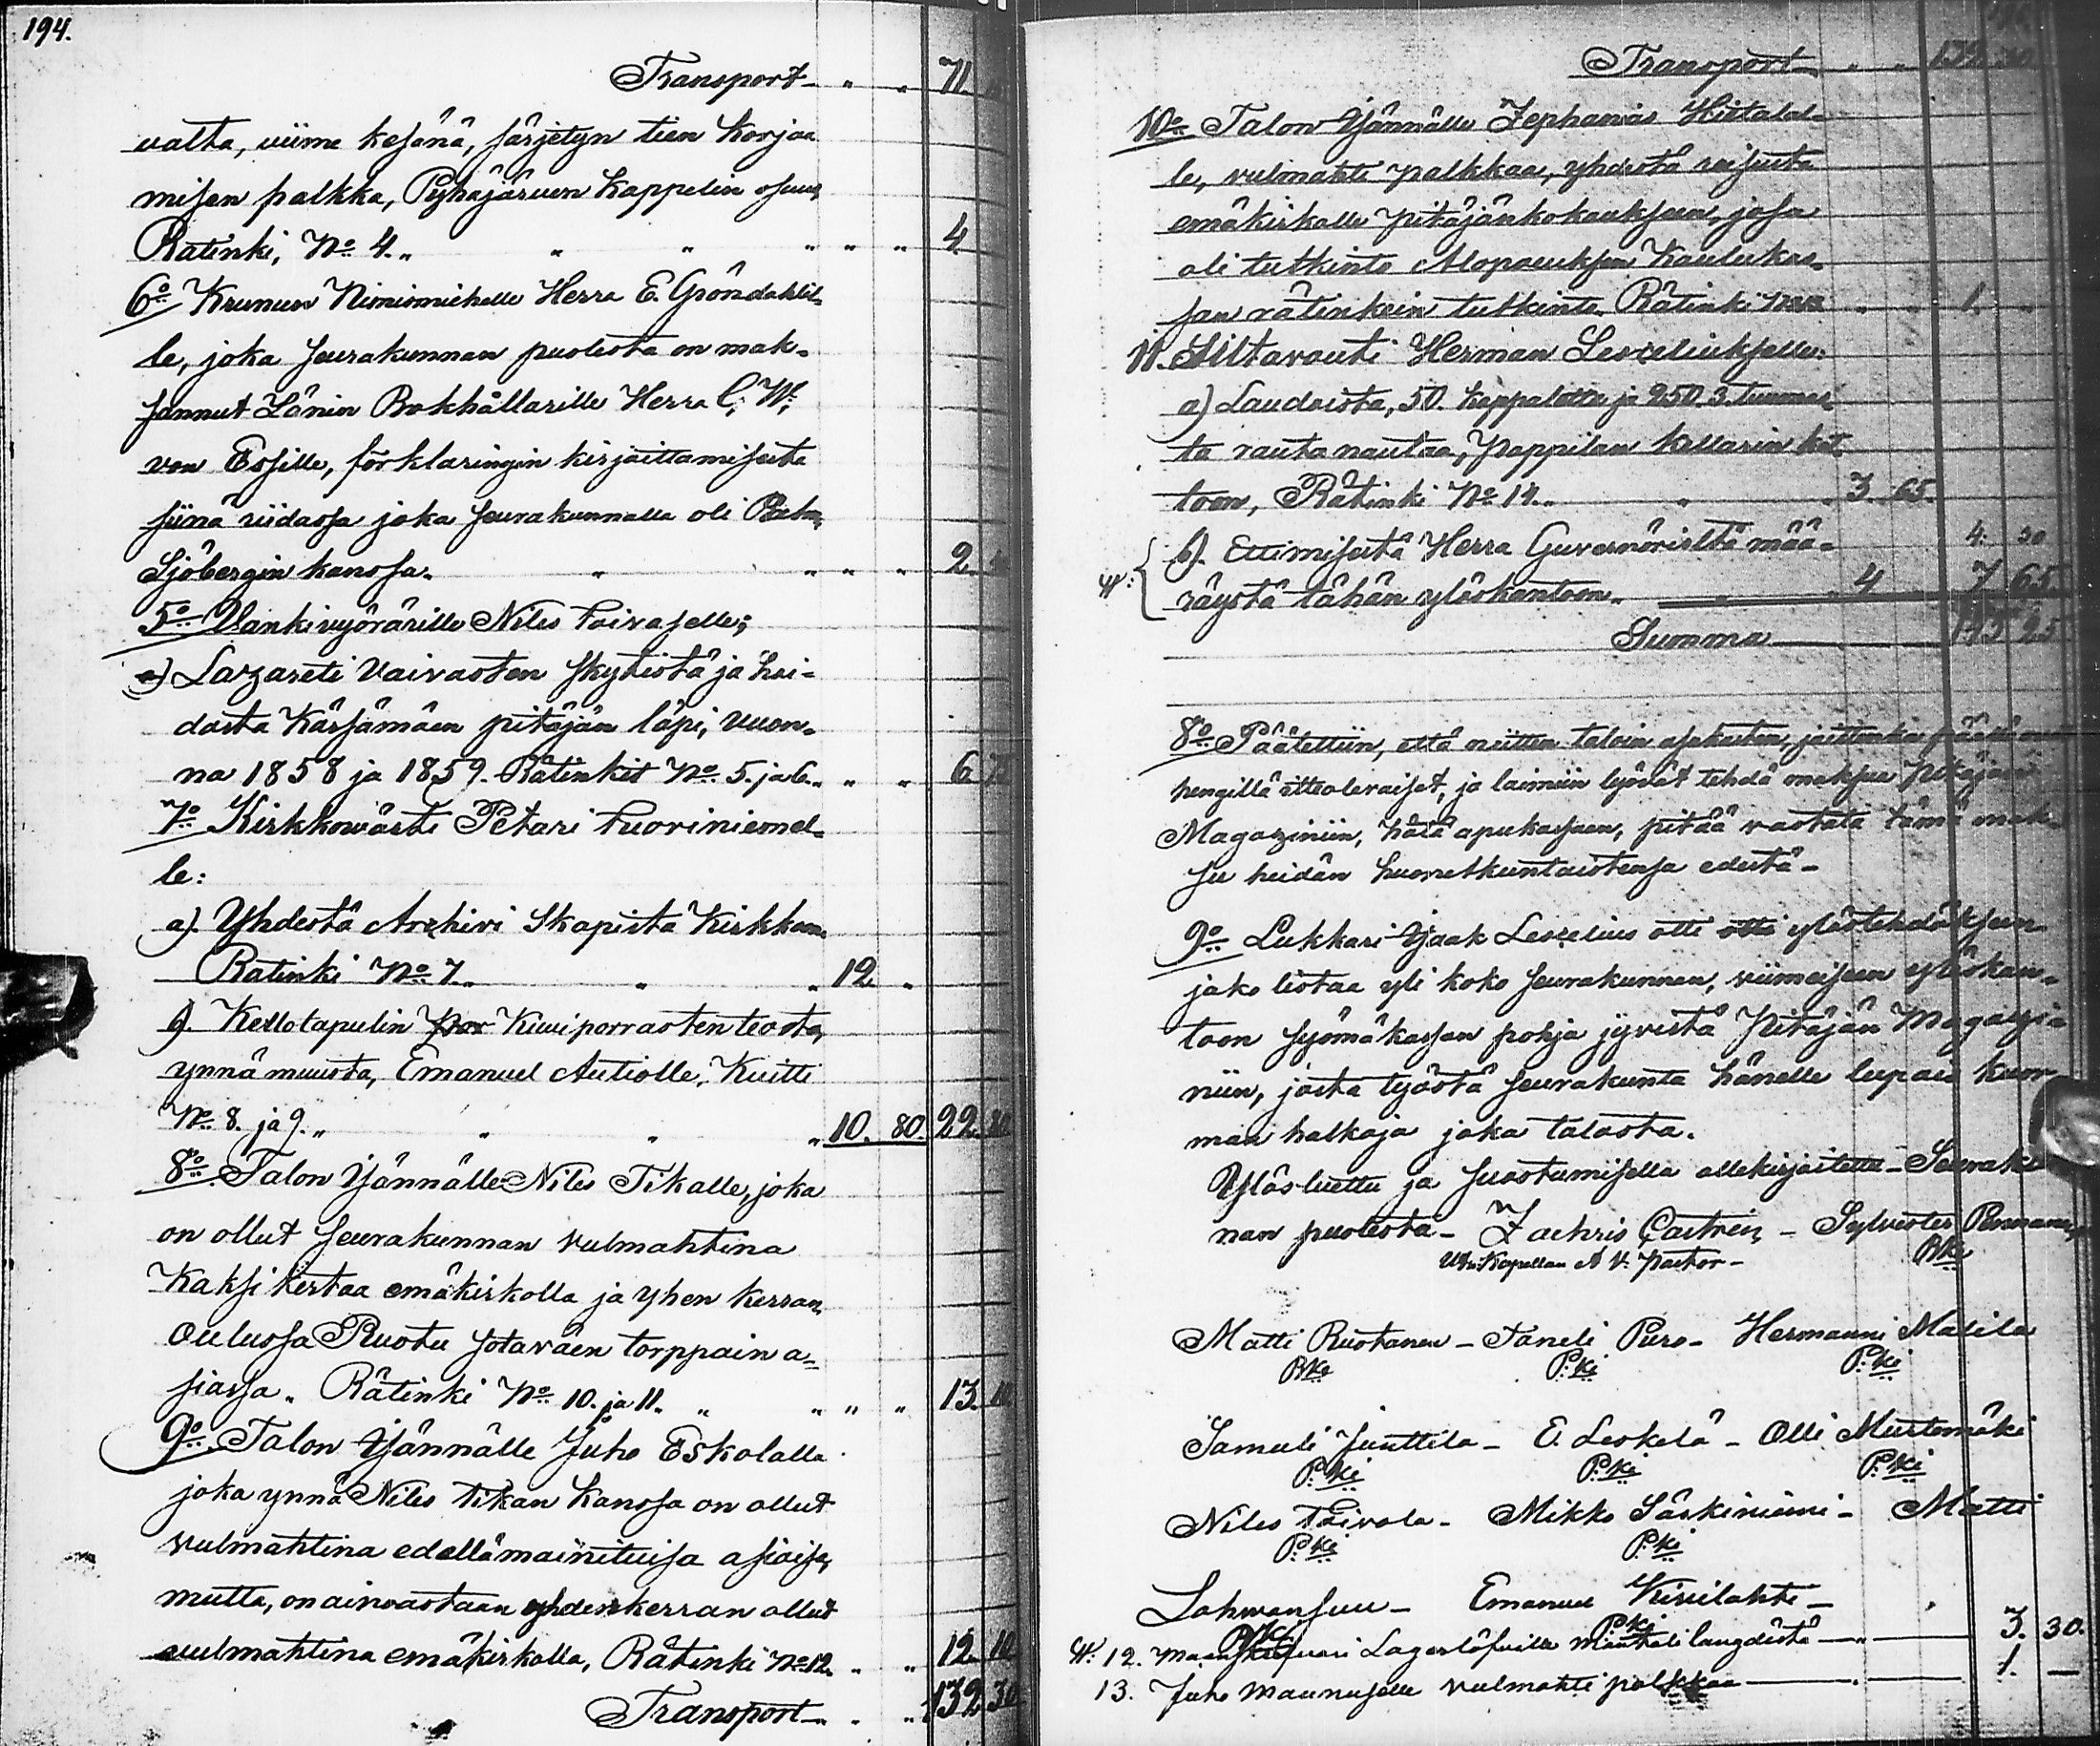 194.
Transport „ „ 71.
valta, viime kesänä, särjetyn tien korjaa
misen palkka, Pyhäjärven kappelin osuus,
Rätinki, No 4. „ „ „ „ „ „ 4.
6o Krunun Nimiomiehelle Herra E. Gröndahlil-
le, joka seurakunnan puolesta on mak-
sannut Länin Bokhållarille Herra C. W.
von Essille, förklaringin kirjoittamisesta
siinä riidassa joka seurakunnalla oli
Sjöbergin kanssa. „ „ „ „ 2.
5o Vankivyörärille Niles Toivaselle;
a) Lazareti Vaivasten skytistä ja hei-
dästä Kärsämäen pitäjän läpi, vuon-
na 1858 ja 1859. Rätinkit No 5. ja 6. „ „ 6 75
7o Kirkkowärti Petari Tuoriniemel-
le:
a). Yhdestä Archivi Skapista Kirkkoon
Rätinki No 7. „ „ 12. „
b). Kellotapulin Por Kiviporrasten teosta,
ynnä muusta, Emanuel Autiolle, Kuitti
No 8. ja 9. „ „ „ „ 10. 80. 22. 80
8o Talon Isännälle Niles Tikalle, joka
on ollut seurakunnan vulmahtina
Kaksi kertaa emäkirkolla ja yhen kerran
Oulussa Ruotu sotaväen torppain a-
siassa. Rätinki No 10. ja 11. „ „ „ „ 13. 10.
9o Talon Isännälle Juho Eskolalla
joka ynnä Niles Tikan kanssa on ollut
vulmahtina edellämainituisa asioisa,
mutta, on ainoastaan yhden kerran ollut
vulmahtina emäkirkolla, Rätinki No 12. „ „ 12. 10
Transport „ „ 132 30
Transport „ „ 132 30
10o Talon Isännälle Zephanias Hietalal-
le, vulmahti palkkaa, yhdestä reisusta
emäkirkolle pitäjänkokoukseen, josa
oli tutkinto Alopaeuksen Kaulukas-
san rätinkein tutkinto. Rätinki „ „ 1. „
11. Siltavouti Herman Lesceliukselle:
a) Laudoista, 50. kappaletta ja 250. 3. tuumas-
ta rauta nautaa, Pappilan kellarin kat-
toon, Rätinki No 14. „ „ „ 3 65.
b). Ettimisestä Herra Guvernöriltä mää- 4. 30
räystä tähän yläskantoon. „ „ 4 7 65.
Summa 25
8o Päätettiin, että niitten taloin asukasten, joittenka
hengillä itteolevaiset, ja laimiin lyövät tehdä maksua Pitäjän
Magaziniin, hätä apukassaan, pitää vastata tämä mak-
su heidän huonetkuntaistensa edestä -
9o Lukkari Isaak Lescelius otti otti ylöstehdäksen
jako listaa yli koko seurakunnan, viimeiseen yläskan-
toon syömäkassan pohja jyvistä Pitäjän Magazi-
niin, josta työstä seurakunta hänelle lupais kuor-
man halkoja joka talosta.
Yläsluettu ja suostumisella allekirjoitettu - Seurakun
nan puolesta - Zachris Castrén, - Sylvester Pennanen,
Kapellan A V. Pastor - Pki
Matti Ruotanen - Taneli Puro - Hermanni Malila
Pki P:ki P:ki
Samuli Junttila - E. Leskelä - Olli Mustomäki
P:ki P:ki P:ki
Niles Toivola - Mikko Särkiniemi - Matti
P:ki P:ki
Lohvansuu - Emanuel Kivilahti -
Pki Pki
12. Lagerlöfville langdistä „ 3. 30.
13. Juho Maunuselle vulmahti palkkaa 1. —